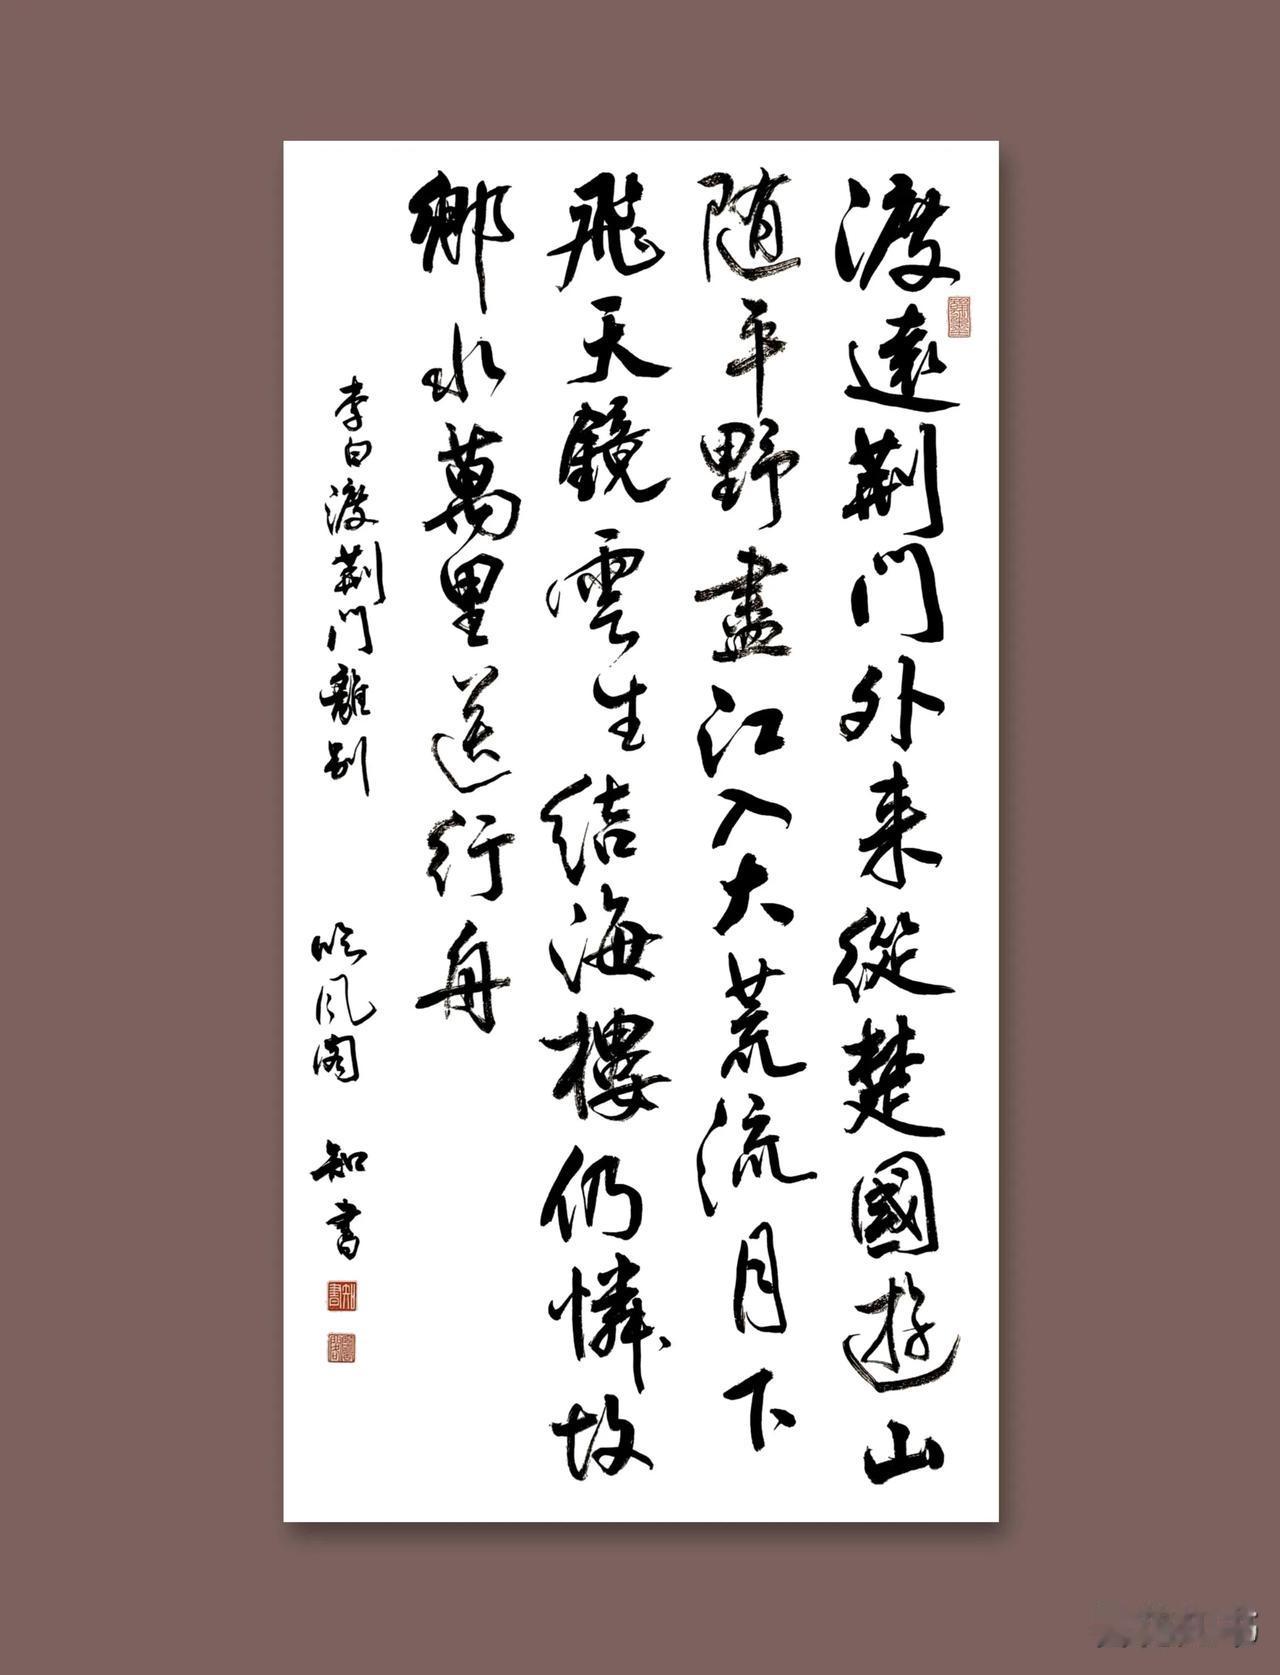 渡遠荆門外来從楚國遊山
随平野盡江入大荒流月下
飛天鏡雲生结海樓仍憐故
鄉水萬里送行舟
李白渡荆門離别
吟风阁 知書
知書